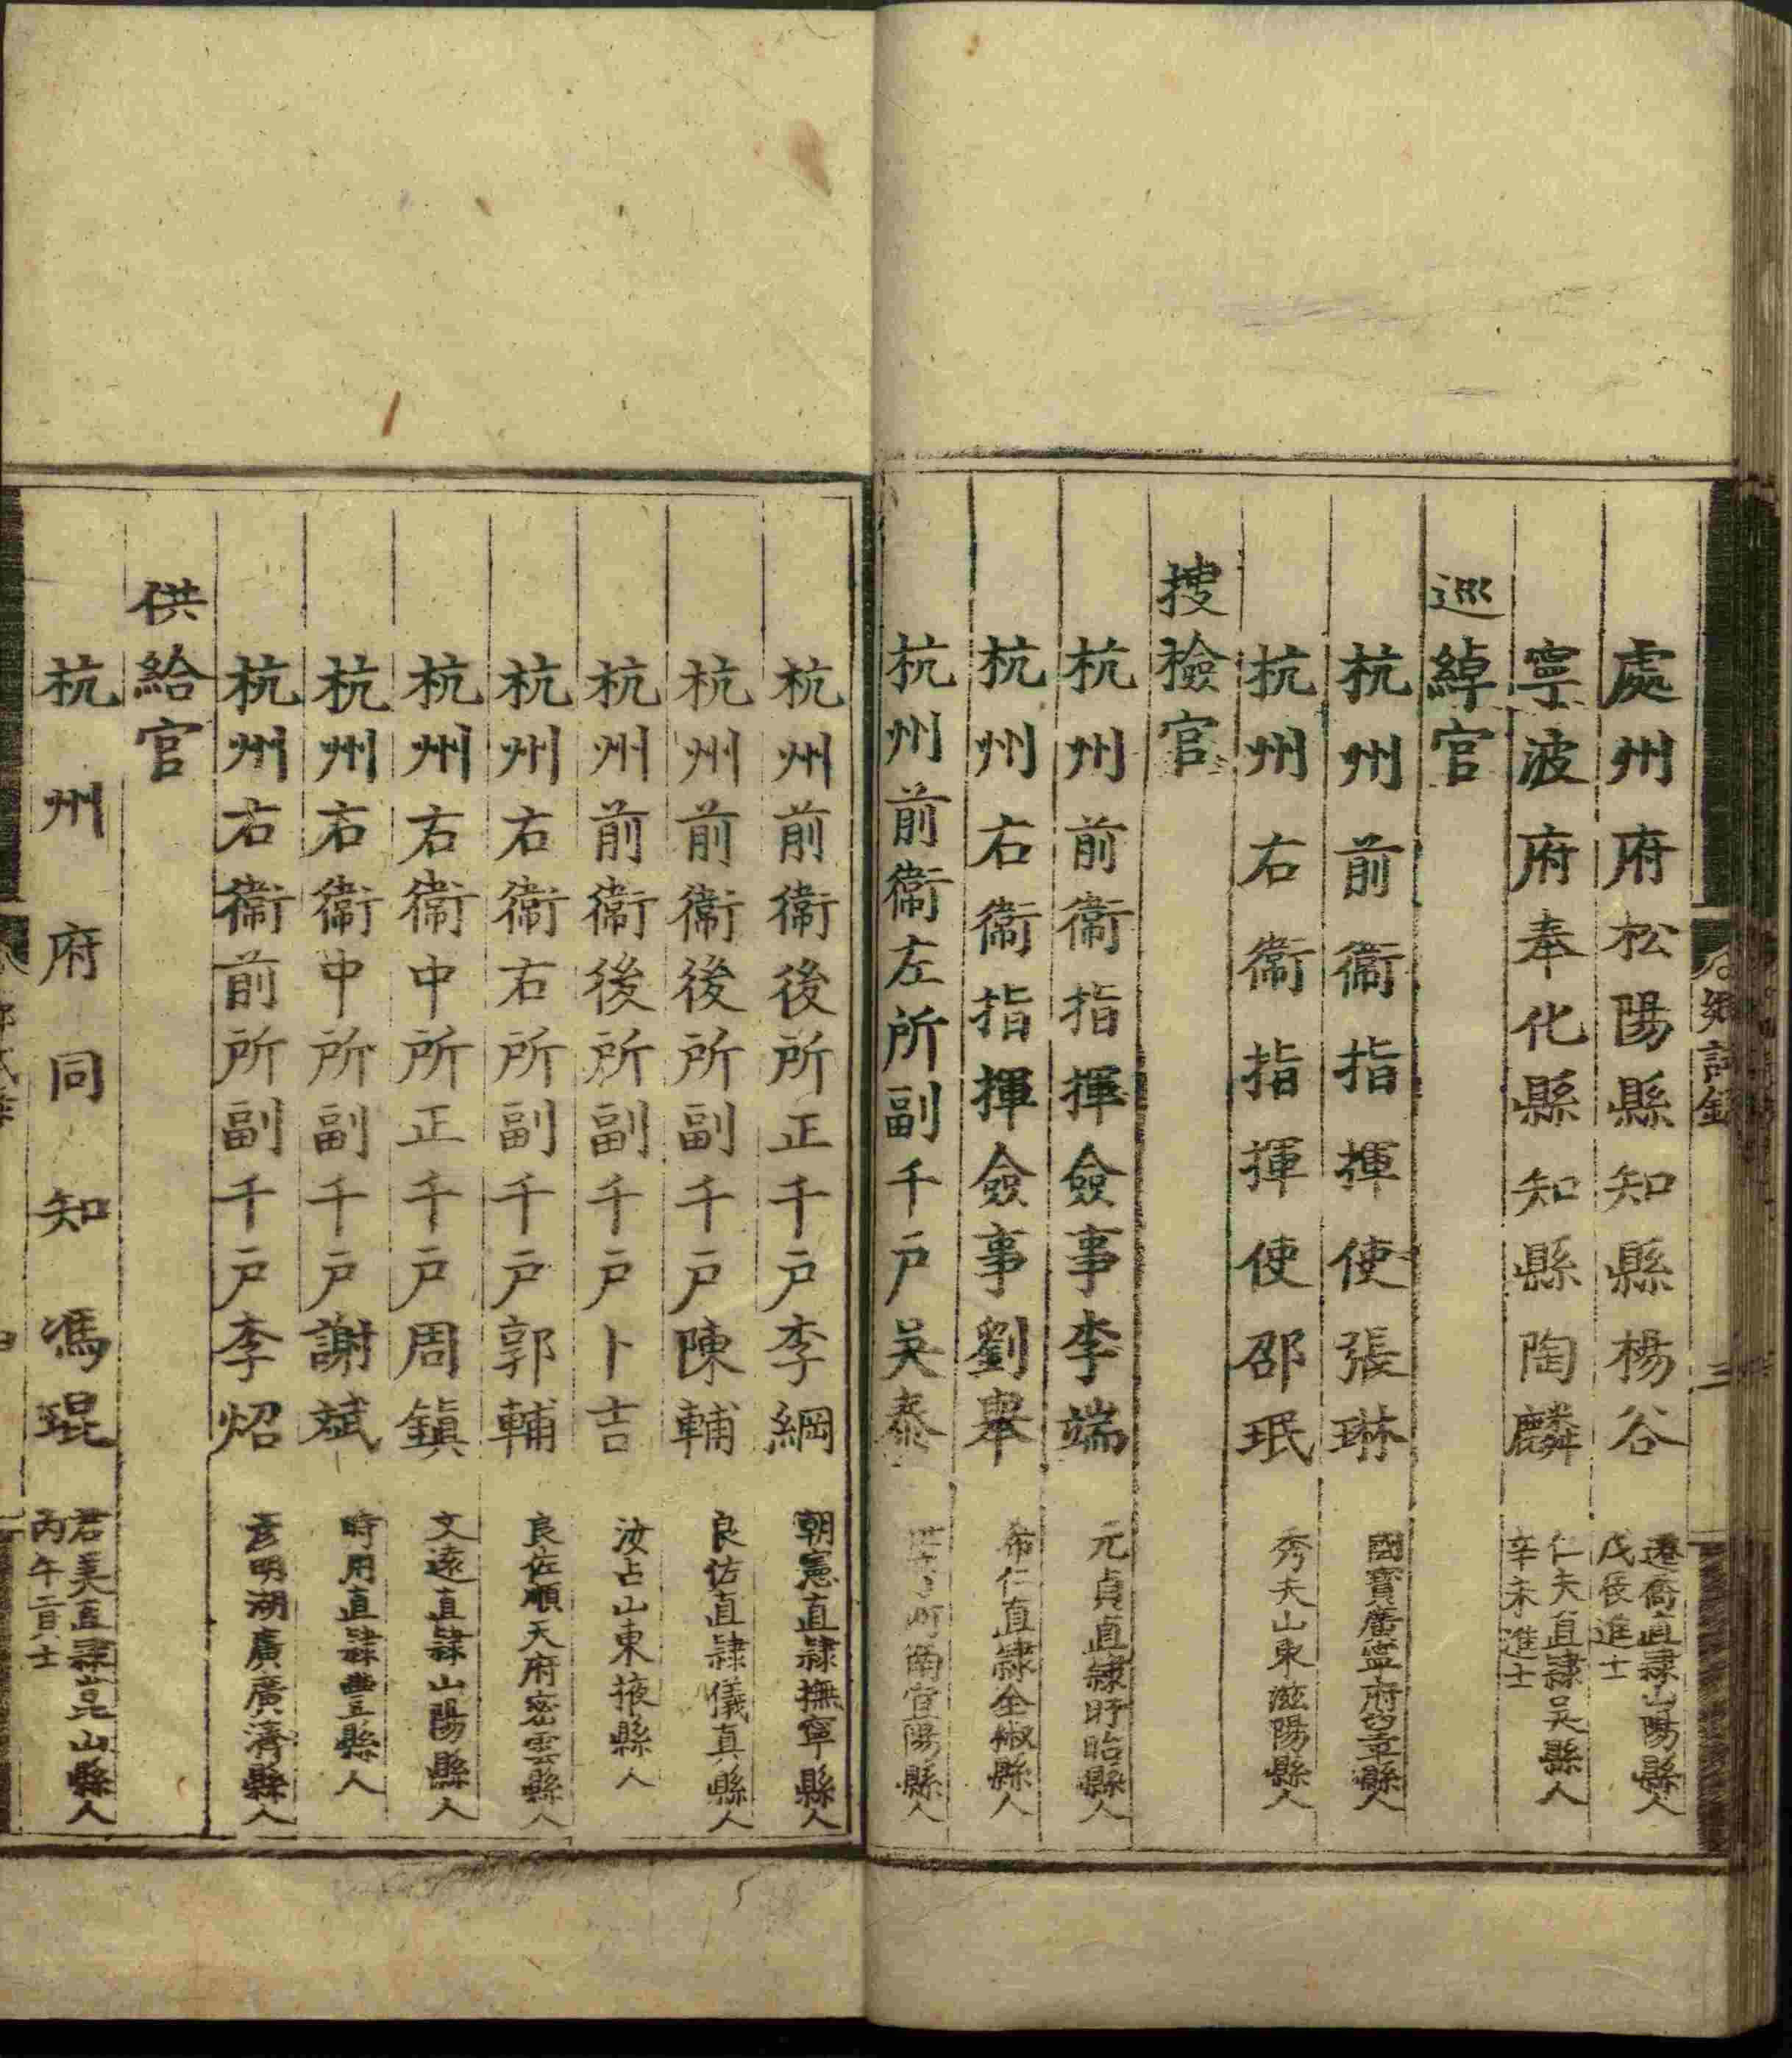 處州府松陽縣知縣楊谷 遷喬直隷山陽縣人
戊辰進士
寧波府奉化縣知縣陶麟 仁夫直隷吳縣人
辛未進士
巡綽官
杭州前衞指揮使張琳
杭州右衞指揮使邵珉 秀夫山東滋陽縣人
搜檢官
杭州前衞指揮僉事李端 元貞直隷盱眙縣人
杭州右衞指揮僉事劉舉 希仁直隷全椒縣人
杭州前衞左所副千户吴泰
杭州前衞後所正千户李綱 朝憲直隷撫寧縣人
杭州前衞後所副千户陳輔 良佐直隷儀真縣人
杭州前衞後所副千户卜吉 汝占山東掖縣人
杭州右衞右所副千户郭輔 良佐順天府密雲縣人
杭州右衞中所正千户周鎮 文遠直隷山陽縣人
杭州右衞中所副千户謝斌 時用直隷豐縣人
杭州右衞前所副千户李炤 彥明湖廣廣濟縣人
供給官
杭州府同知馮琨 君美直隷崑山縣人